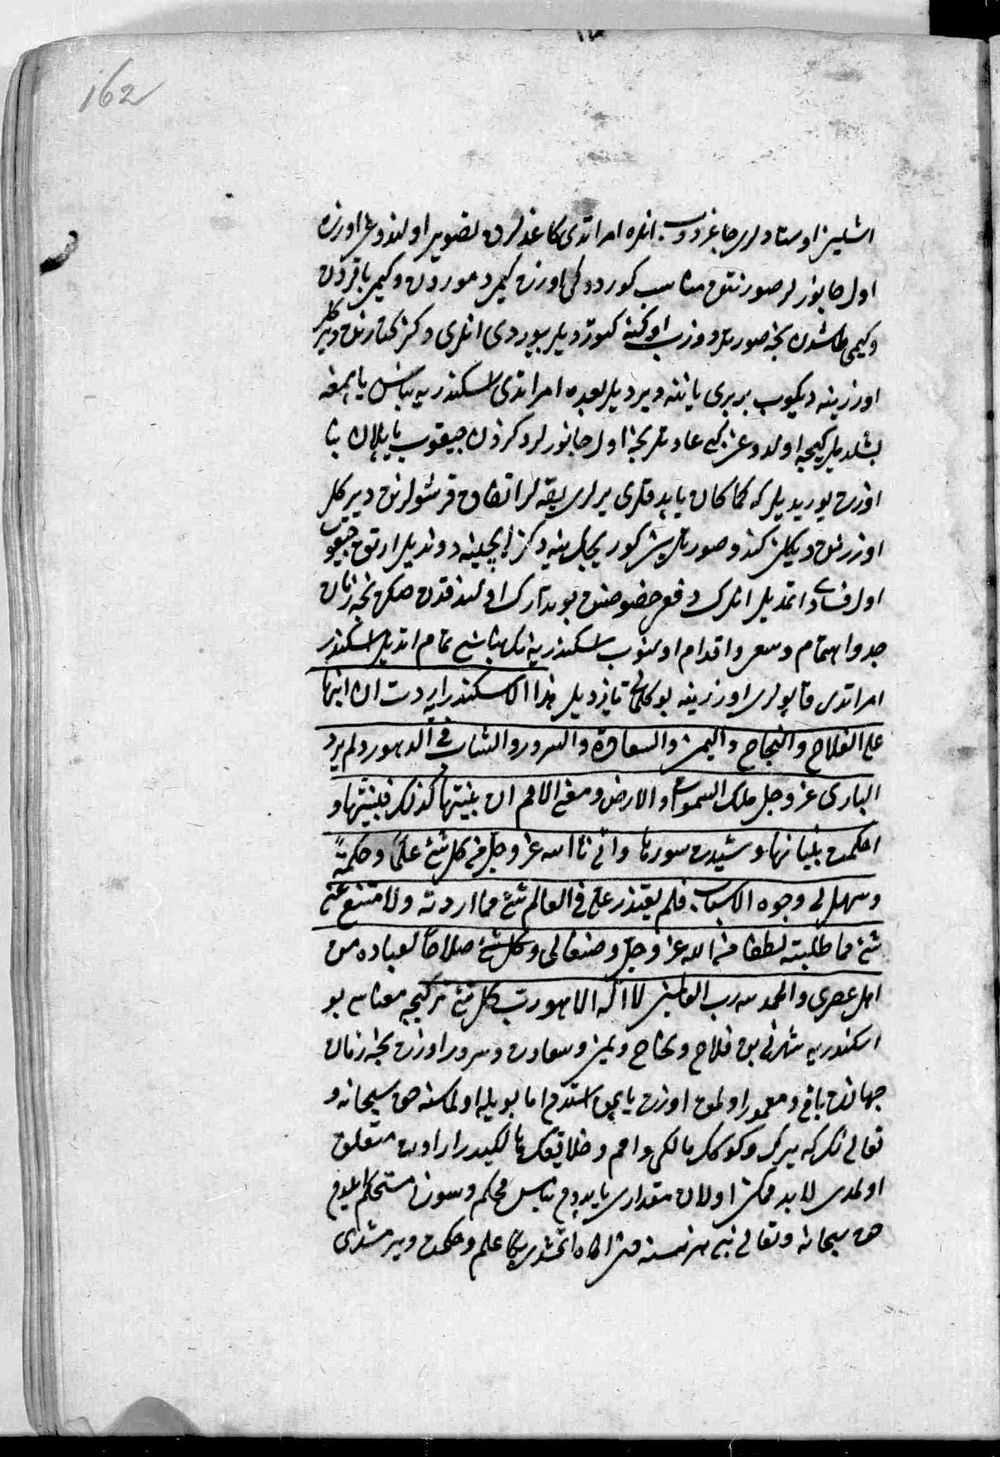 162
اشلين اوستادلری چاغردوب انلره امر اتدی کاغدلرده تصویر اولندوغی اوزره
اول جانورلر صورتنه مناسب کوردوکی اوزره کمی دموردن و کمی باقردن
و کیمی طاشدن نجه صورتلر دوزوب اوکنه کتوردیلر بیوردی انلری دکز کنارنده دیرکلر
اوزرینه دیکوب بربری یاننه ویردیلر بعده امر اتدی اسکندریه بناسن یاپمغه
بشلدیلر کیجه اولدوغی کبی عادتلرنجه اول جانورلر دکزدن چیقوب یاپلان بنا
اوزره یوریدیلر که کما کان یاپدقلری یرلری یقه لر اتفاق قرشولرنده دیرکلر
اوزرنده دیکلن کندو صورتلرین کوریجک ینه دکز ایچینه دوندیلر ارتق چیقوب
اول فسادی اتمدیلر انلرک دفعی خصوصنده بو تدارک اولندقدن صکره نجه زمان
جد و اهتمام و سعی و اقدام اولنوب اسکندریه نک بناسنی تمام اتدیلر اسکندر
امر اتدی قاپولری اوزرینه بو کلامی یازدیلر هذا الاسکندریه اردت ان ابنیها
علی الفلاح والنجاح والیمن والسعادة والسرور والثبات فی الدهور ولم یرد
الباری عز وجل ملک السموات والارض ومفنی الامم ان بنیتها کذلک فبنیتها و
احکمت بنیانها وشیدت سورها واتانی الله عز وجل من کل شئ علما وحکمة
وسهل لی وجوه الاسباب فلم یتعذر علی فی العالم شئ مما اردته ولا امتنع عنی
شئ مما طلبته لطفا من الله عز وجل وصنعا لی وکل شئ صلاحا لعباده من
اهل عصری والحمد لله رب العالمین لا اله الا هو رب کل شئ ترکیجه معناسی بو
اسکندریه شهرنی بن فلاح و نجاح و یمن و سعادت و سرور اوزره نجه زمان
جهانده باقی و معمور اولمق اوزره یاپمق استدم اما بویله اولماسنه حق سبحانه و
تعالی نک که یرک و کوکک مالکی و امم و خلایقک هالکیدر ارادت متعلق
اولمدی لابد ممکن اولان مقداری یاپدم بناسن محکم و سورن مستحکم ایلدم
حق سبحانه و تعالی بنی هر نسنه دن اکاه اتمشدر بکا علم و حکمت ویرمشدی